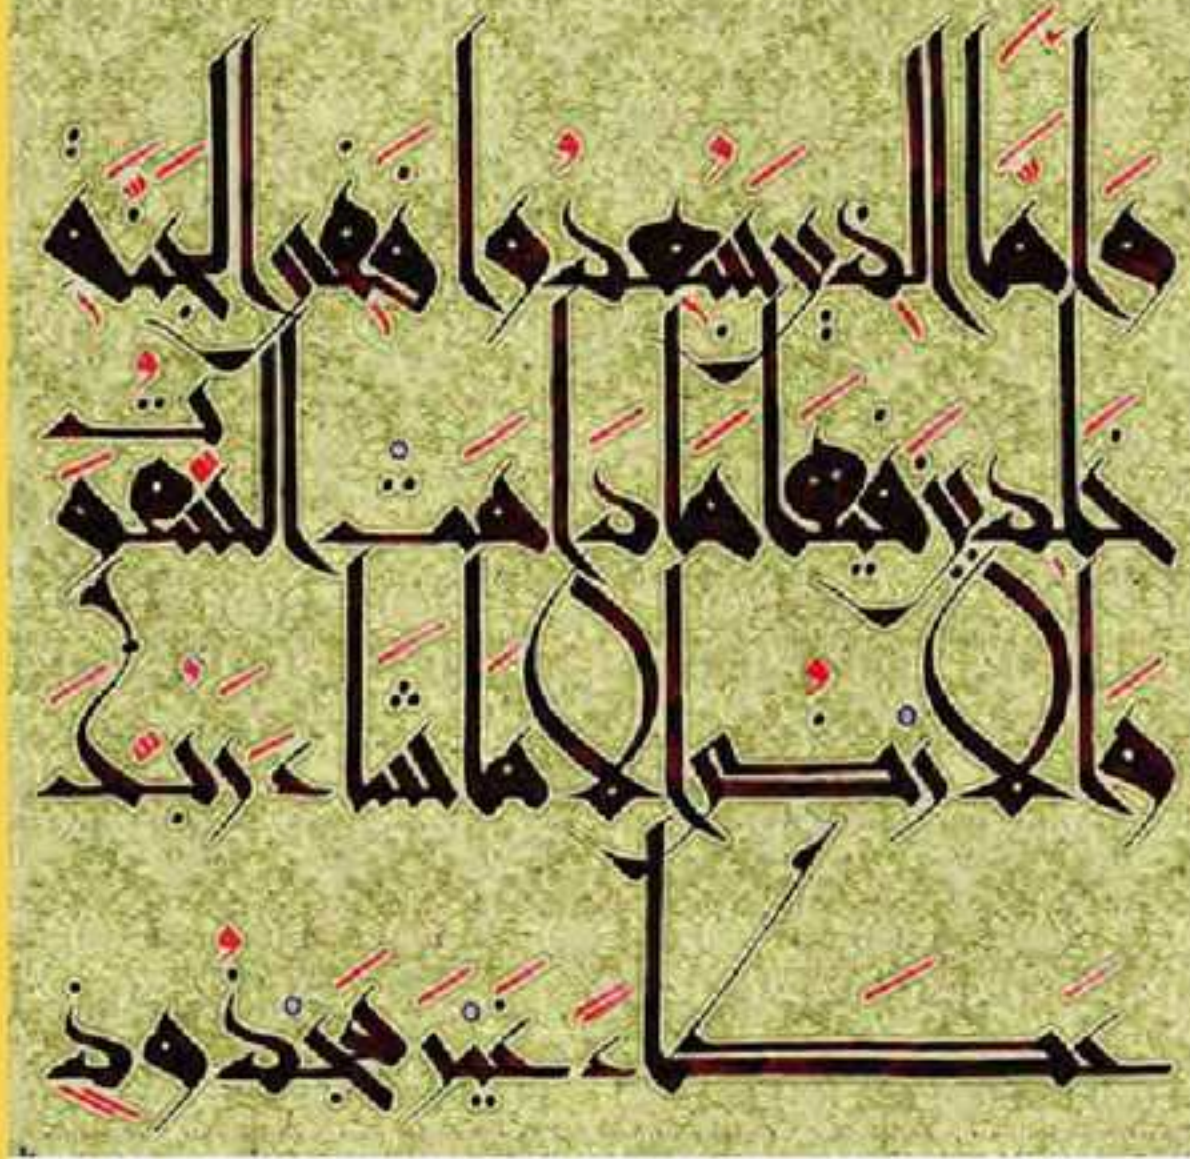 وَأَمَّا الَّذِينَ سُعِدُوا فَفِي الْجَنَّةِ
خَالِدِينَ فِيهَا مَا دَامَتْ السَّمَوَتُ
وَالْأَرْضُ إِلَّا مَا شَاءَ رَبُّكَ
عَطَاءً غَيْرَ مَجْذُوذٍ